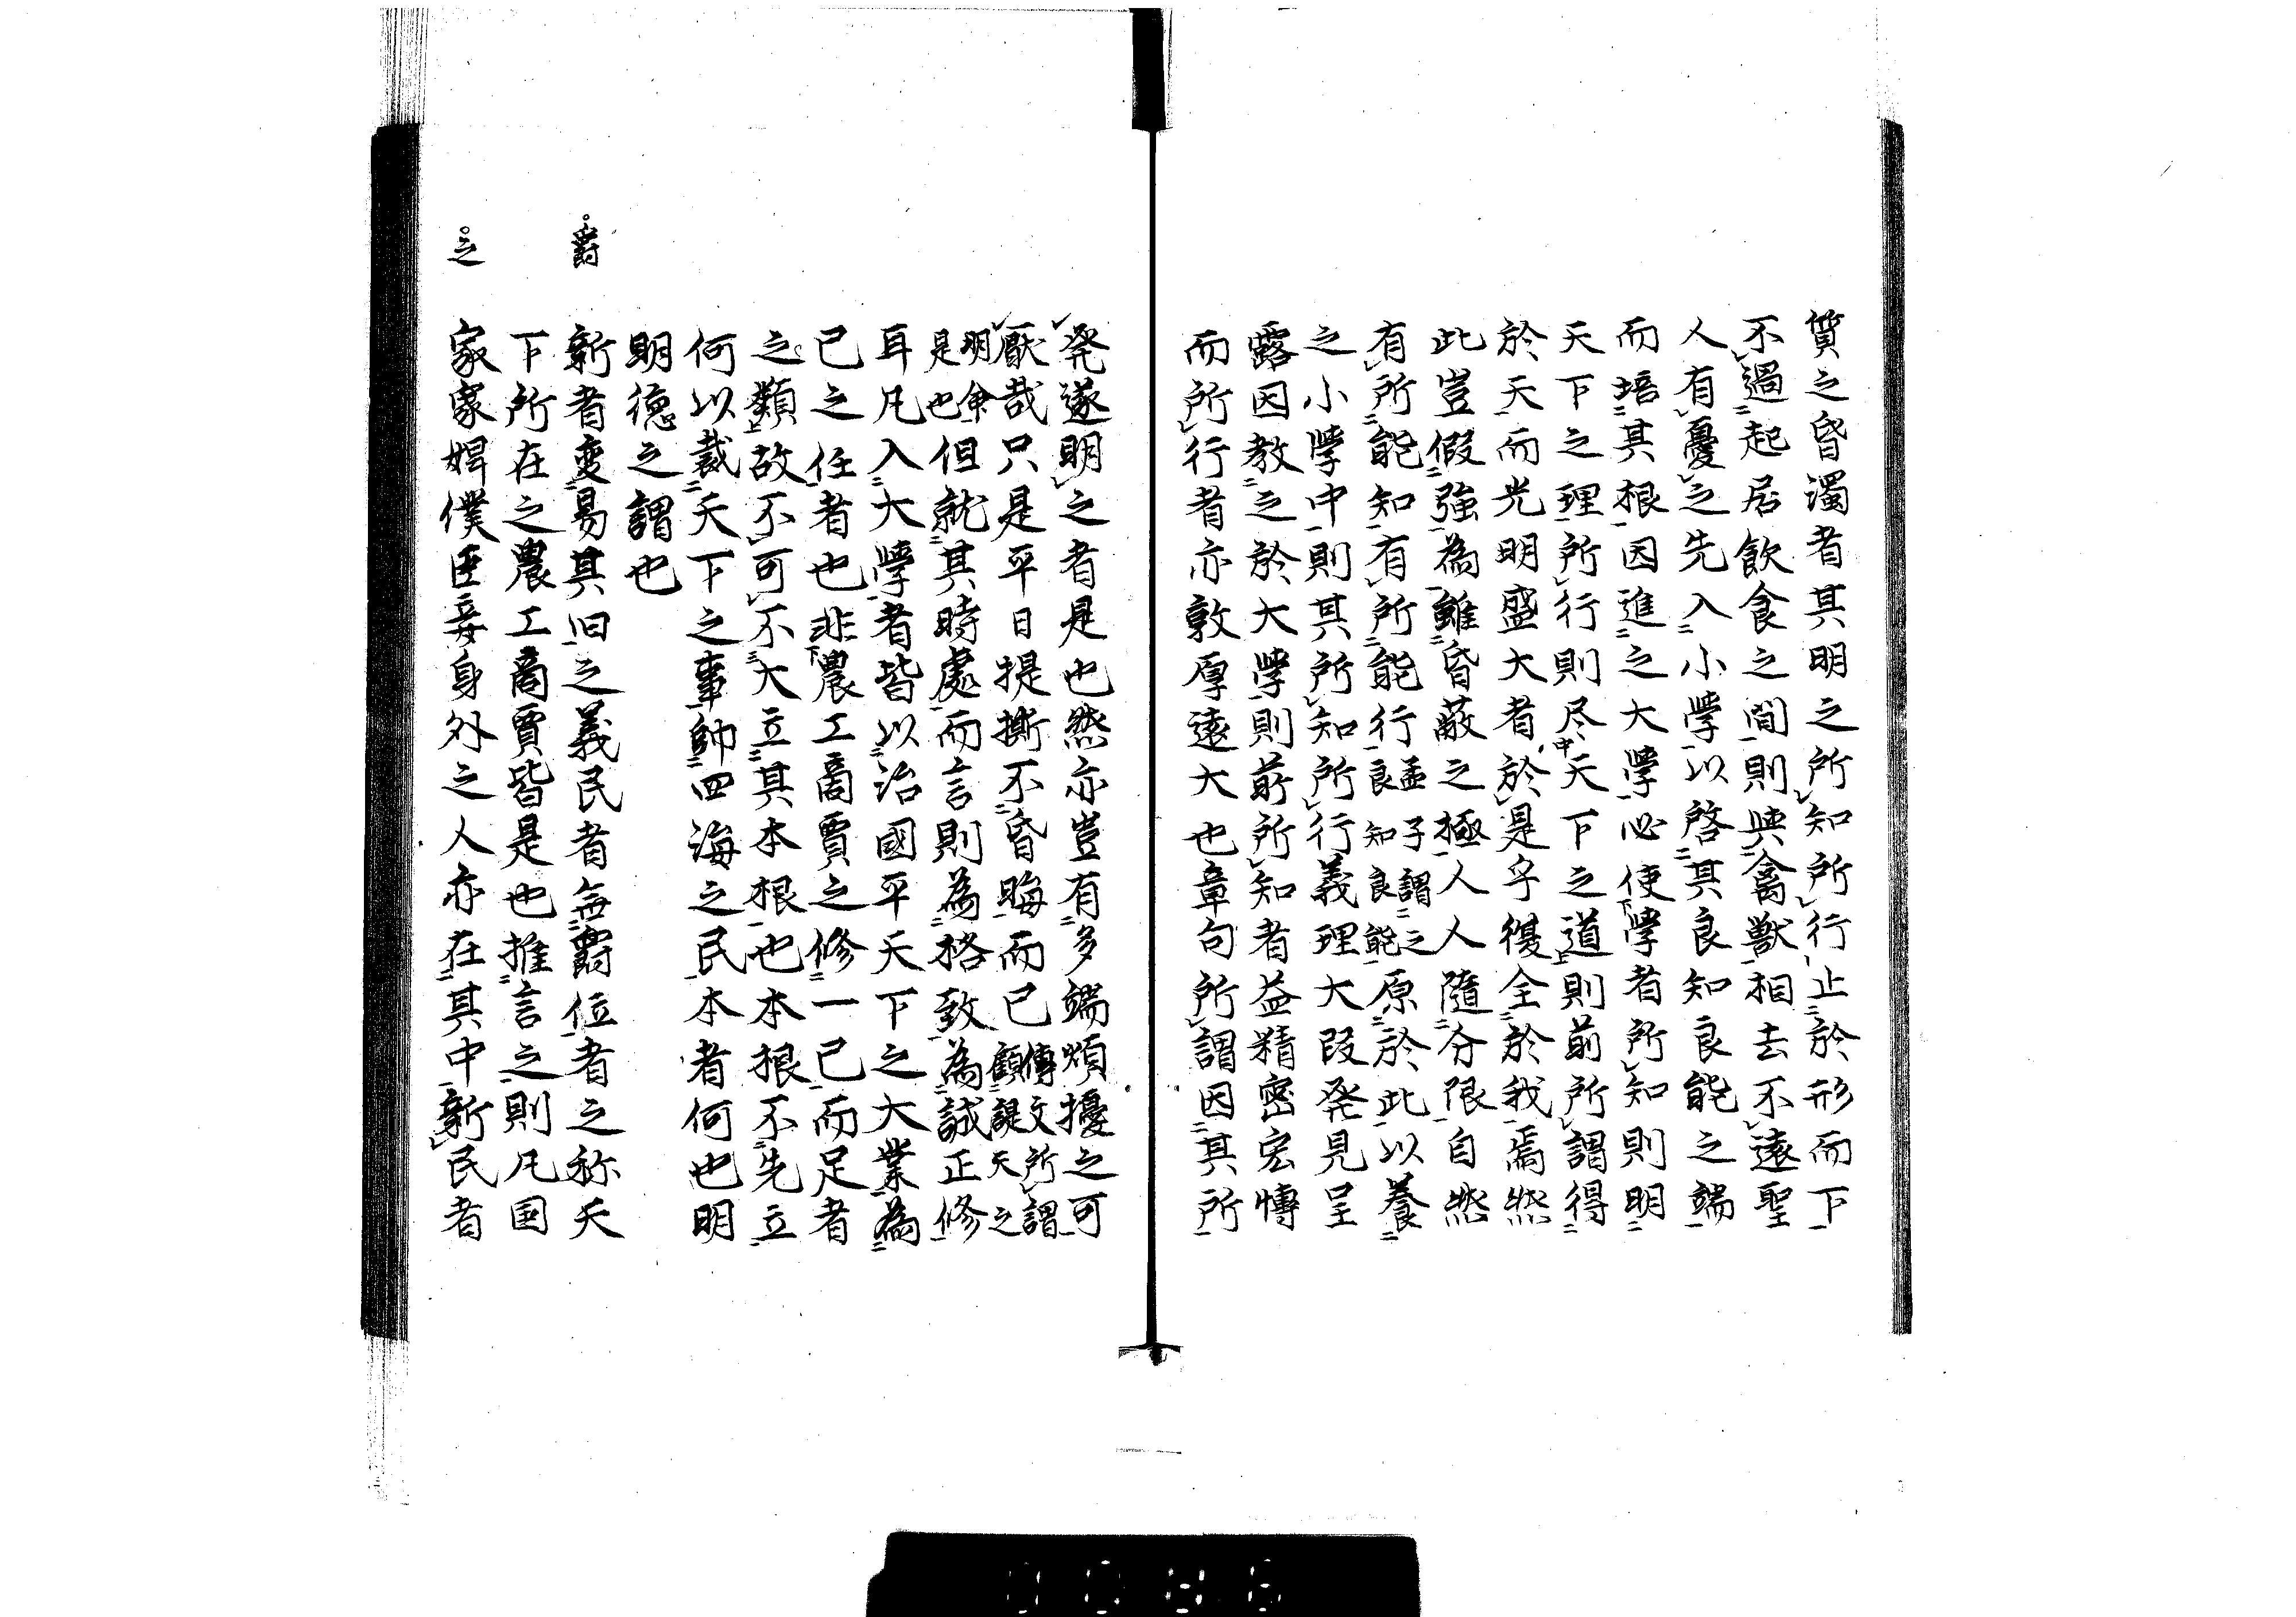 質之昏濁者其明之所知所行止於形而下
不過起居飲食之間則與禽獸相去不遠聖
人有憂之先入小學以啓其良知良能之端
而培其根因進之大學必使學者所知則明
天下之理所行則尽天下之道則前所謂得
於天而光明盛大者於是乎復全於我焉然
此豈假強為雖昏蔽之極人人隨分限自然
有所能知有所能行孟子謂之良知良能原於此以養
之小學中則其所知所行義理大段発見呈
露因教之於大學則前所知者益精密宏慱
而所行者亦敦厚遠大也章句所謂因其所
発遂明之者是也然亦豈有多端煩擾之可
厭哉只是平日提撕不昏晦而已傳文所謂顧諟天之
明命是也但就其時處而言則為格致為誠正修
耳凡入大學者皆以治國平天下之大業為
己之任者也非農工商賈之修一己而足者
之類故不可不大立其本根也本根不先立
何以裁天下之事帥四海之民本者何也明
明徳之謂也
爵
新者変易其旧之義民者無爵位者之称天
下所在之農工商賈皆是也推言之則凡国
之
家家婢僕臣妾身外之人亦在其中新民者